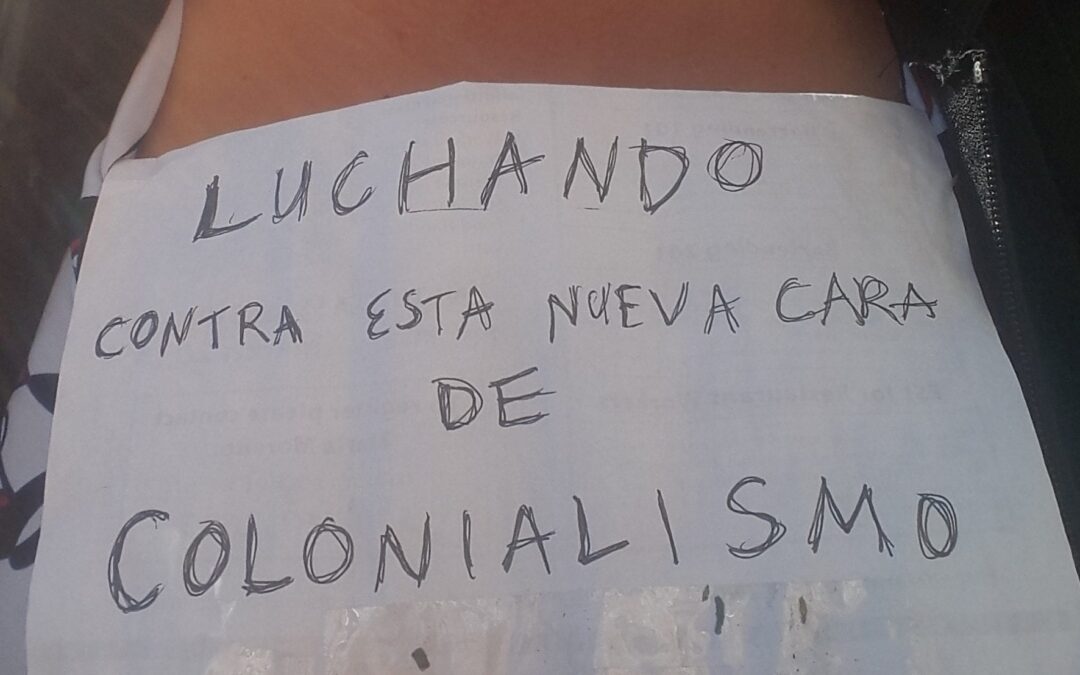 LUCHANDO
CONTRA ESTA NUEVA CARA
DE
COLONIALISMO